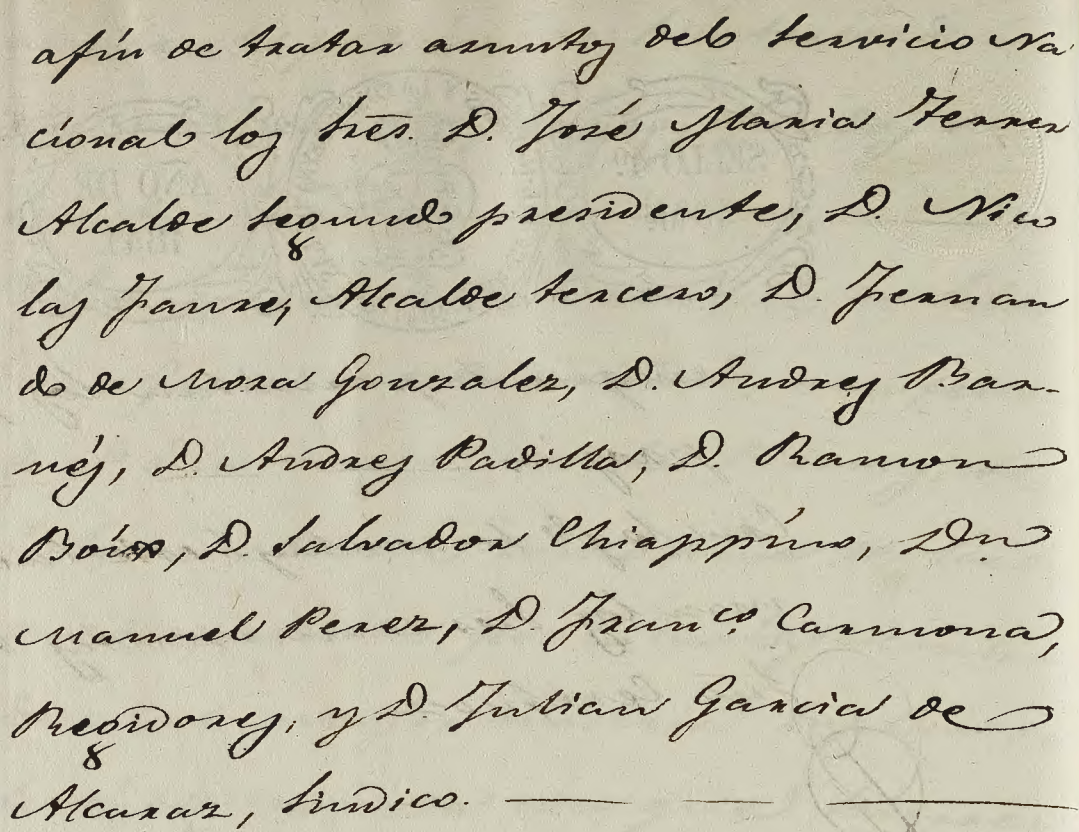 afín de tratar asuntos del Servicio Na
cional los Sres. D. José Maria Ferrer
Alcalde Segundo presidente, D. Nico
las Faure, Alcalde tercero, D. Fernan
do de Mora Gonzalez, D. Andres Bar-
nés, D. Andres Padilla, D. Ramon
Boíx, D. Salvador Chiappíno, Dn.
Manuel Perez, D. Franco. Carmona,
Regidores, y D. Julian Garcia de
Alcaraz, Sindico.